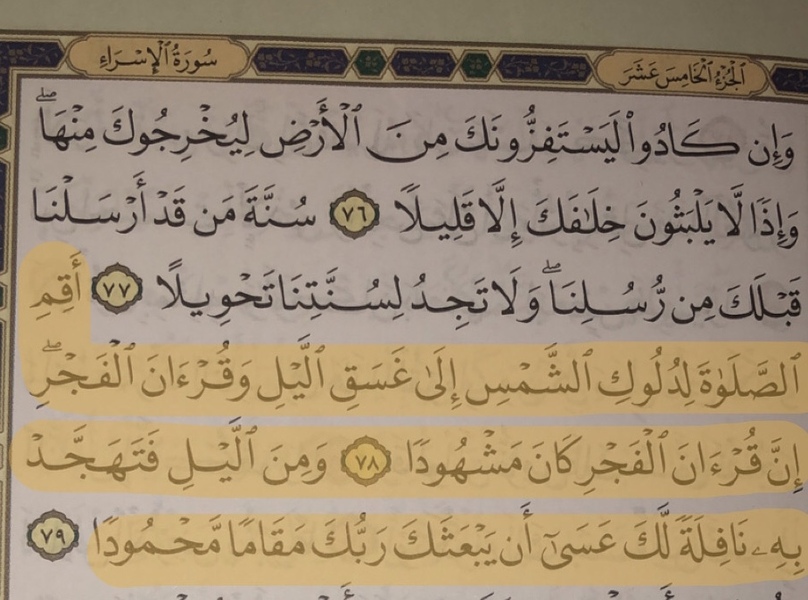 الجُزْءُ الخَامِسَ عَشَرَ
سُورَةُ الإِسْرَاءِ
وَإِن كَادُواْ لَيَسْتَفِزُّونَكَ مِنَ ٱلْأَرْضِ لِيُخْرِجُوكَ مِنْهَاۖ
وَإِذًا لَّا يَلْبَثُونَ خِلَٰفَكَ إِلَّا قَلِيلًا ٧٦ سُنَّةَ مَن قَدْ أَرْسَلْنَا
قَبْلَكَ مِن رُّسُلِنَاۖ وَلَا تَجِدُ لِسُنَّتِنَا تَحْوِيلًا ٧٧ أَقِمِ
ٱلصَّلَوٰةَ لِدُلُوكِ ٱلشَّمْسِ إِلَىٰ غَسَقِ ٱلَّيْلِ وَقُرْءَانَ ٱلْفَجْرِۖ
إِنَّ قُرْءَانَ ٱلْفَجْرِ كَانَ مَشْهُودًا ٧٨ وَمِنَ ٱلَّيْلِ فَتَهَجَّدْ
بِهِۦ نَافِلَةً لَّكَ عَسَىٰٓ أَن يَبْعَثَكَ رَبُّكَ مَقَامًا مَّحْمُودًا ٧٩